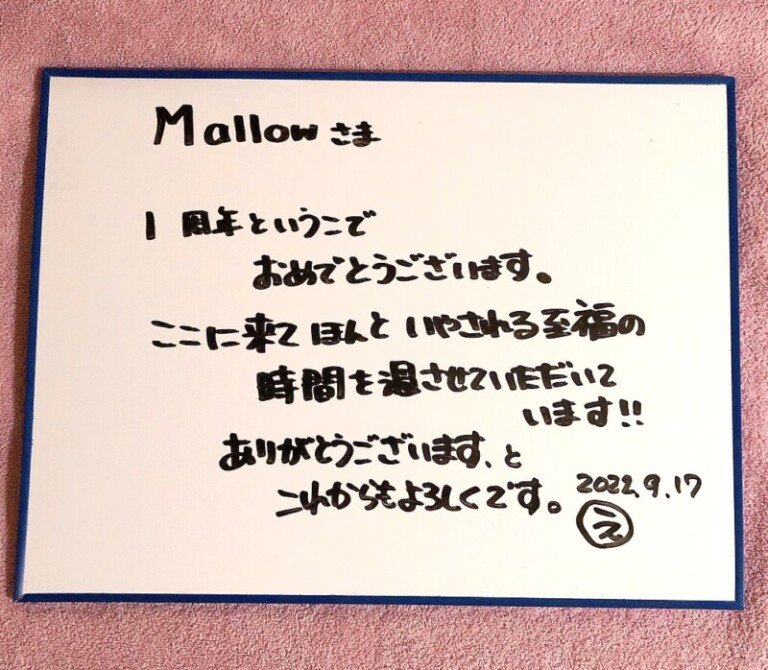 Mallowさま
1周年というこで
おめでとうございます。
ここに来てほんといやされる至福の
時間を過させていただいて
います!!
ありがとうございます、と
これからもよろしくです。
2022.9.17
え